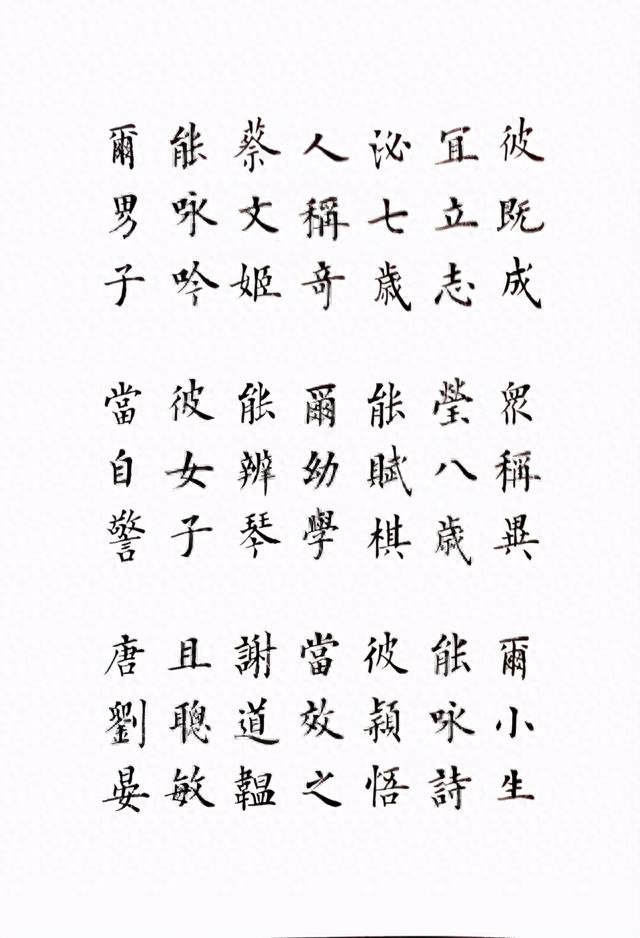 彼既成 衆稱異 爾小生
冝立志 瑩八歳 能咏詩
泌七歳 能賦棋 彼穎悟
人稱奇 爾幼學 當效之
蔡文姬 能辨琴 謝道韞
能咏吟 彼女子 且聰敏
爾男子 當自警 唐劉晏